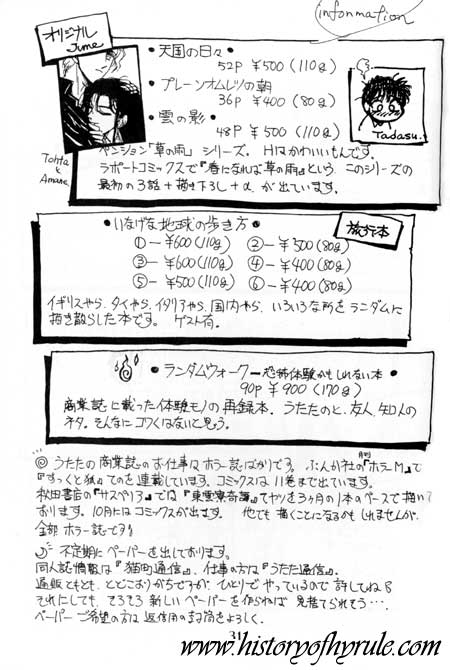 information
オリジナル
June
・天国の日々・
52p ¥500 (110g)
・プレーンオムレツの朝
36p ¥400 (80g)
・雲の影・
48P ¥500 (110g)
Tadasu.
Tohta
&
Amane
ペンション「草の雨」シリーズ。Hはかわいいもんです。
ラポートコミックスで『春になれば草の雨』という、このシリーズの
最初の3話+描き下ろし+α が出ています。
・いなげな地球の歩き方・
旅行本
①-¥600(110g) ②-¥500(80g)
③-¥600(110g) ④-¥400(80g)
⑤-¥500(110g) ⑥-¥400(80g)
イギリスやら、タイやら、イタリアやら、国内やら、いろいろな所をランダムに
描き散らした本です。 ゲスト有。
・ランダムウォーク-恐怖体験かもしれない本・
90p ¥900 (170g)
商業誌に載った体験モノの再録本。うたたのと、友人、知人の
ネタ。そんなにコワくはないと思う。
◎うたたの商業誌のお仕事はホラー誌ばかりです。ぶんか社の月刊『ホラーM』で
『すっくと狐』てのを連載しています。コミックスは11巻まで出ています。
秋田書店の『サスペリア』では『東雲寮奇譚』てヤツを3ヶ月の1本のペースで描いて
おります。10月にはコミックスが出ます。 他でも描くことになるかもしれませんが、
全部ホラー誌です
不定期にペーパーを出しております。
同人誌情報は『猫町通信』、仕事の方は『うたた通信』。
通販ともども、とどこおりがちですが、ひとりでやっているので許してね
それにしても、そろそろ新しいペーパーを作らねば見捨てられそう…。
ペーパーご希望の方は返信用の封筒をよろしく。
www.historyofhyrule.com